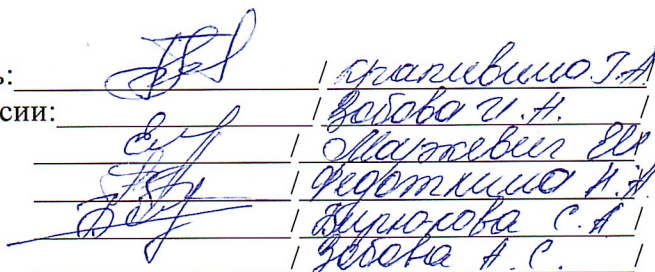 ь: / Крапивина Г.А /
сии: / Зобова И.Н. /
/ Маркевич ЕИ
/ Федоткина Н.А
/ Бирюкова С.А /
/ Зобова А.С. /